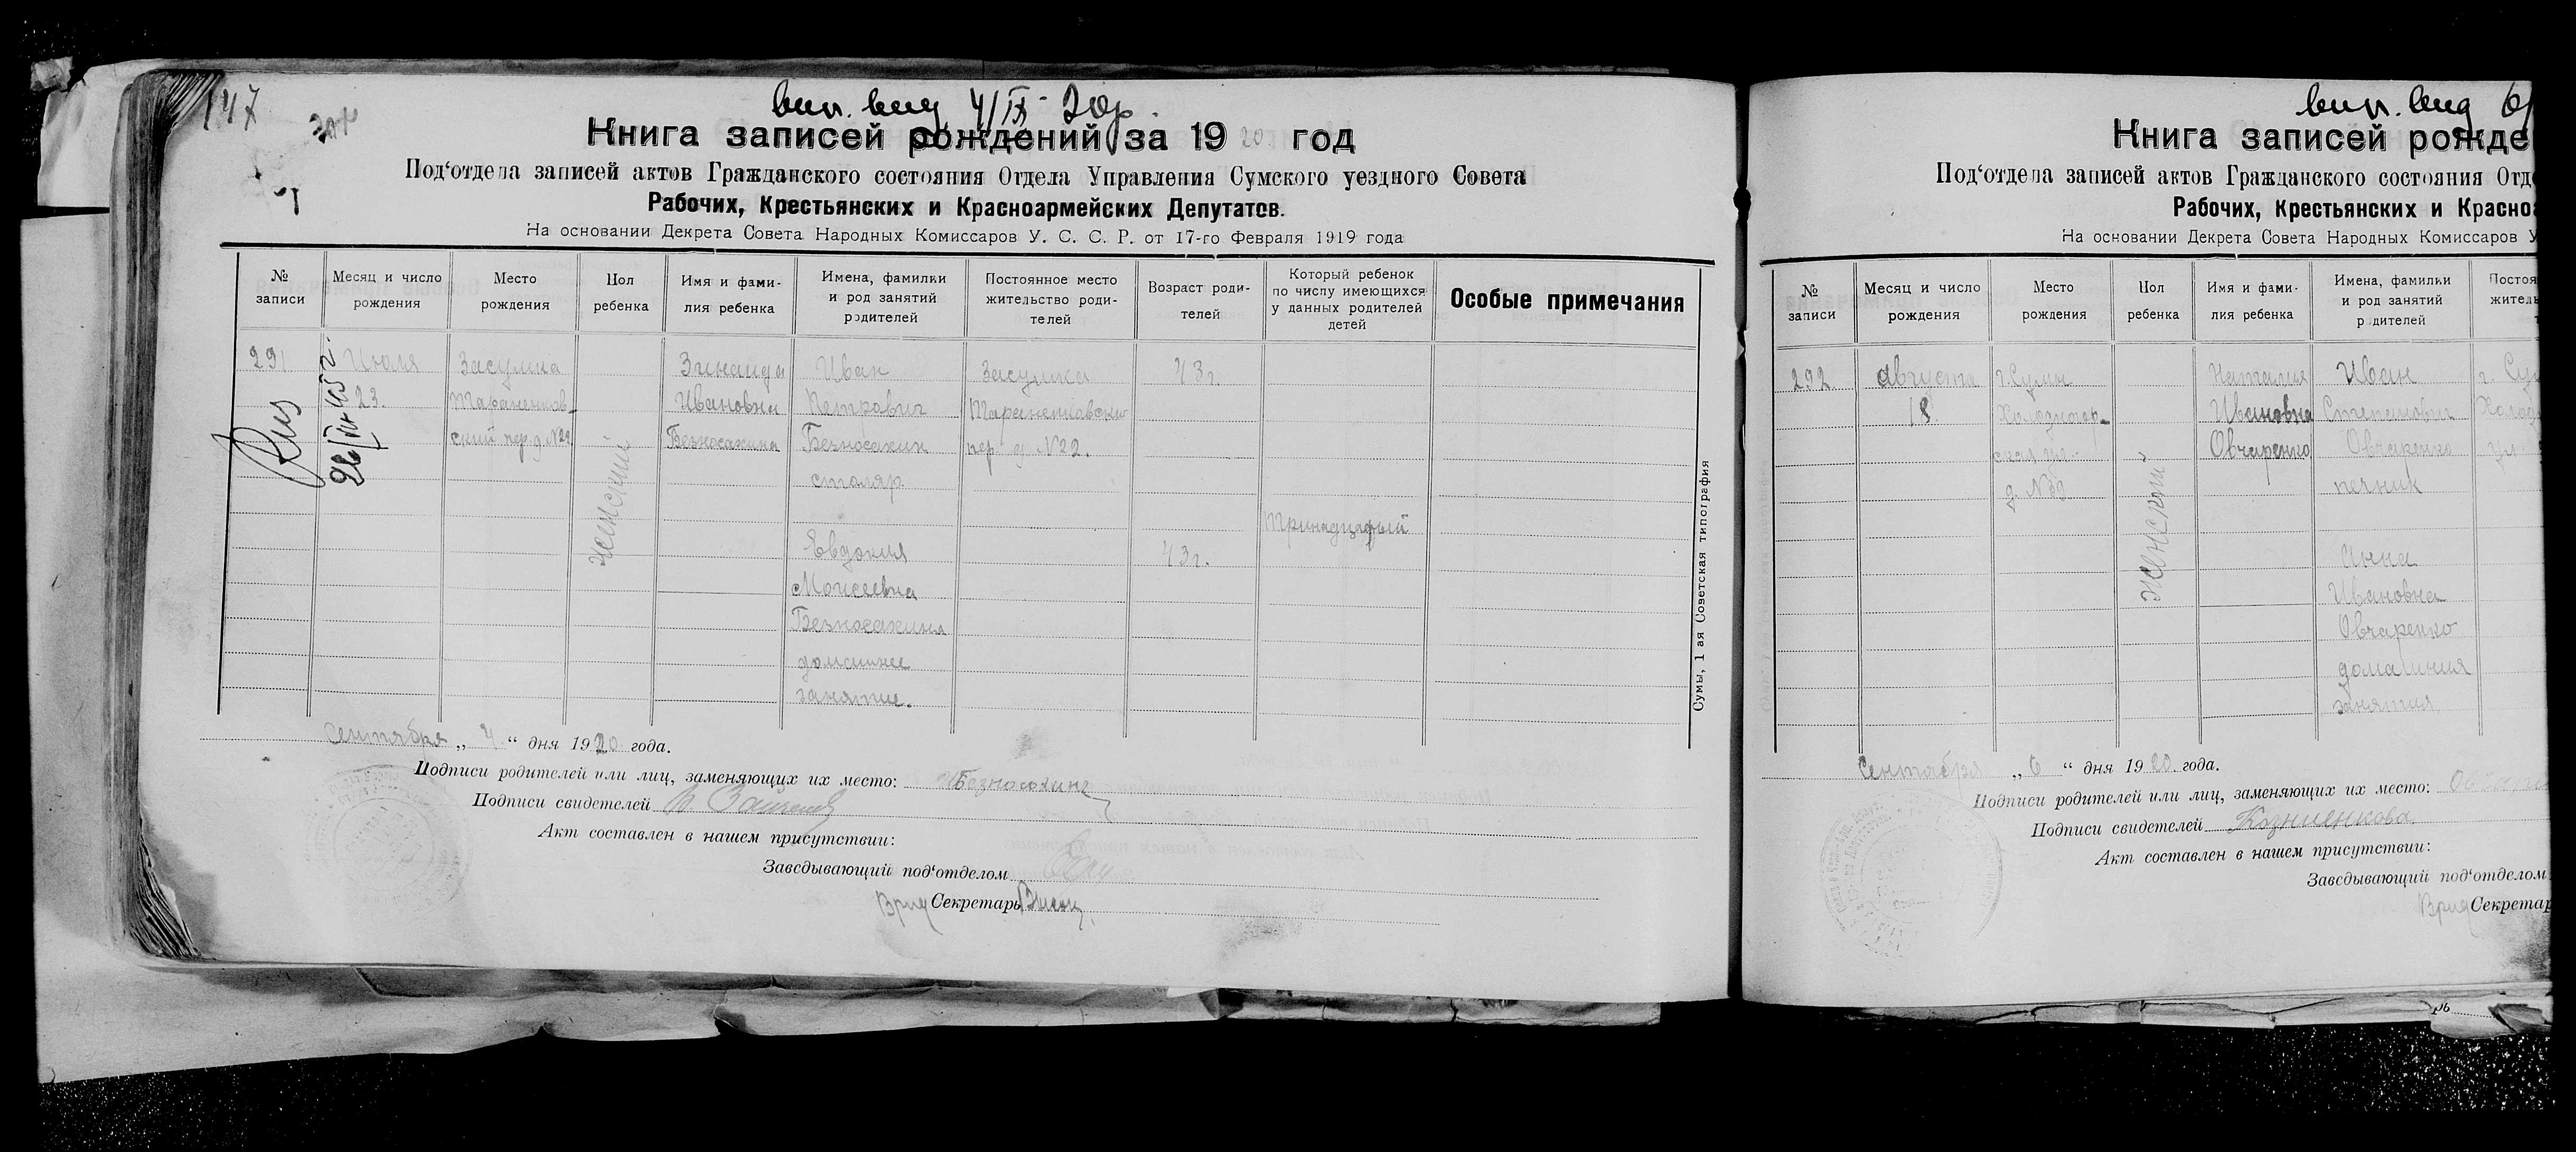 147
вип. вид. 4/IX- 20р.
Книга записей рождений за 1920 год
Под‘отдела записей актов Гражданского состояния Отдела Управления Сумского уездного Совета
Рабочих, Крестьянских и Красноармейских Депутатов.
На основании Декрета Совета Народных Комиссаров У. С. С. Р. от 17-го Февраля 1919 года
№ записи
Месяц и число рождения
Место рождения
Пол ребенка
Имя и фами-
лия ребенка
Имена, фамилии
и род занятий
родителей
Постоянное место
жительство роди-
телей
Возраст роди-
телей
Который ребенок
по числу имеющихся
у данных родителей
детей
Особые примечания
291
Июля
23.
Засумка
Тараненков-
ский пер. д. №22
женский
Зинаида
Ивановна
Безносакина
Иван
Петрович
Безносакин
столяр
Евдокия
Моисеевна
Безносакина
домашнее
занятие.
Засумка
Тараненковский
пер. д. №22.
43г.
43г.
Тринадцатый
Сумы, 1 ая Советская типография
Сентября „ 4. “ дня 1920 года.
Подписи родителей или лиц, заменяющих их место: Безносокина
Подписи свидетелей
Акт составлен в нашем присутствии:
Заведывающий под‘отделом
Врид Секретарь
вип. вид 6/
Книга записей рожде
Под‘отдела записей актов Гражданского состояния Отд
Рабочих, Крестьянских и Красно
На основании Декрета Совета Народных Комиссаров У
№ записи
Месяц и число
рождения
Место
рождения
Пол
ребенка
Имя и фами-
лия ребенка
Имена, фамилии
и род занятий
родителей
Постоя
житель
292.
Августа
18.
г. Сумы
Холодногор-
ская ул.
д. №39
женский
Наталия
Ивановна
Овчаренко
Иван
Степанович
Овчаренко
печник
Анна
Ивановна
Овчаренко
домашния
занятия.
г. Су
Холод
ул.
Сентября „ 6 “ дня 1920 года.
Подписи родителей или лиц, заменяющих их место:
Подписи свидетелей
Акт составлен в нашем присутствии:
Заведывающий под‘отделом
Врид Секретар